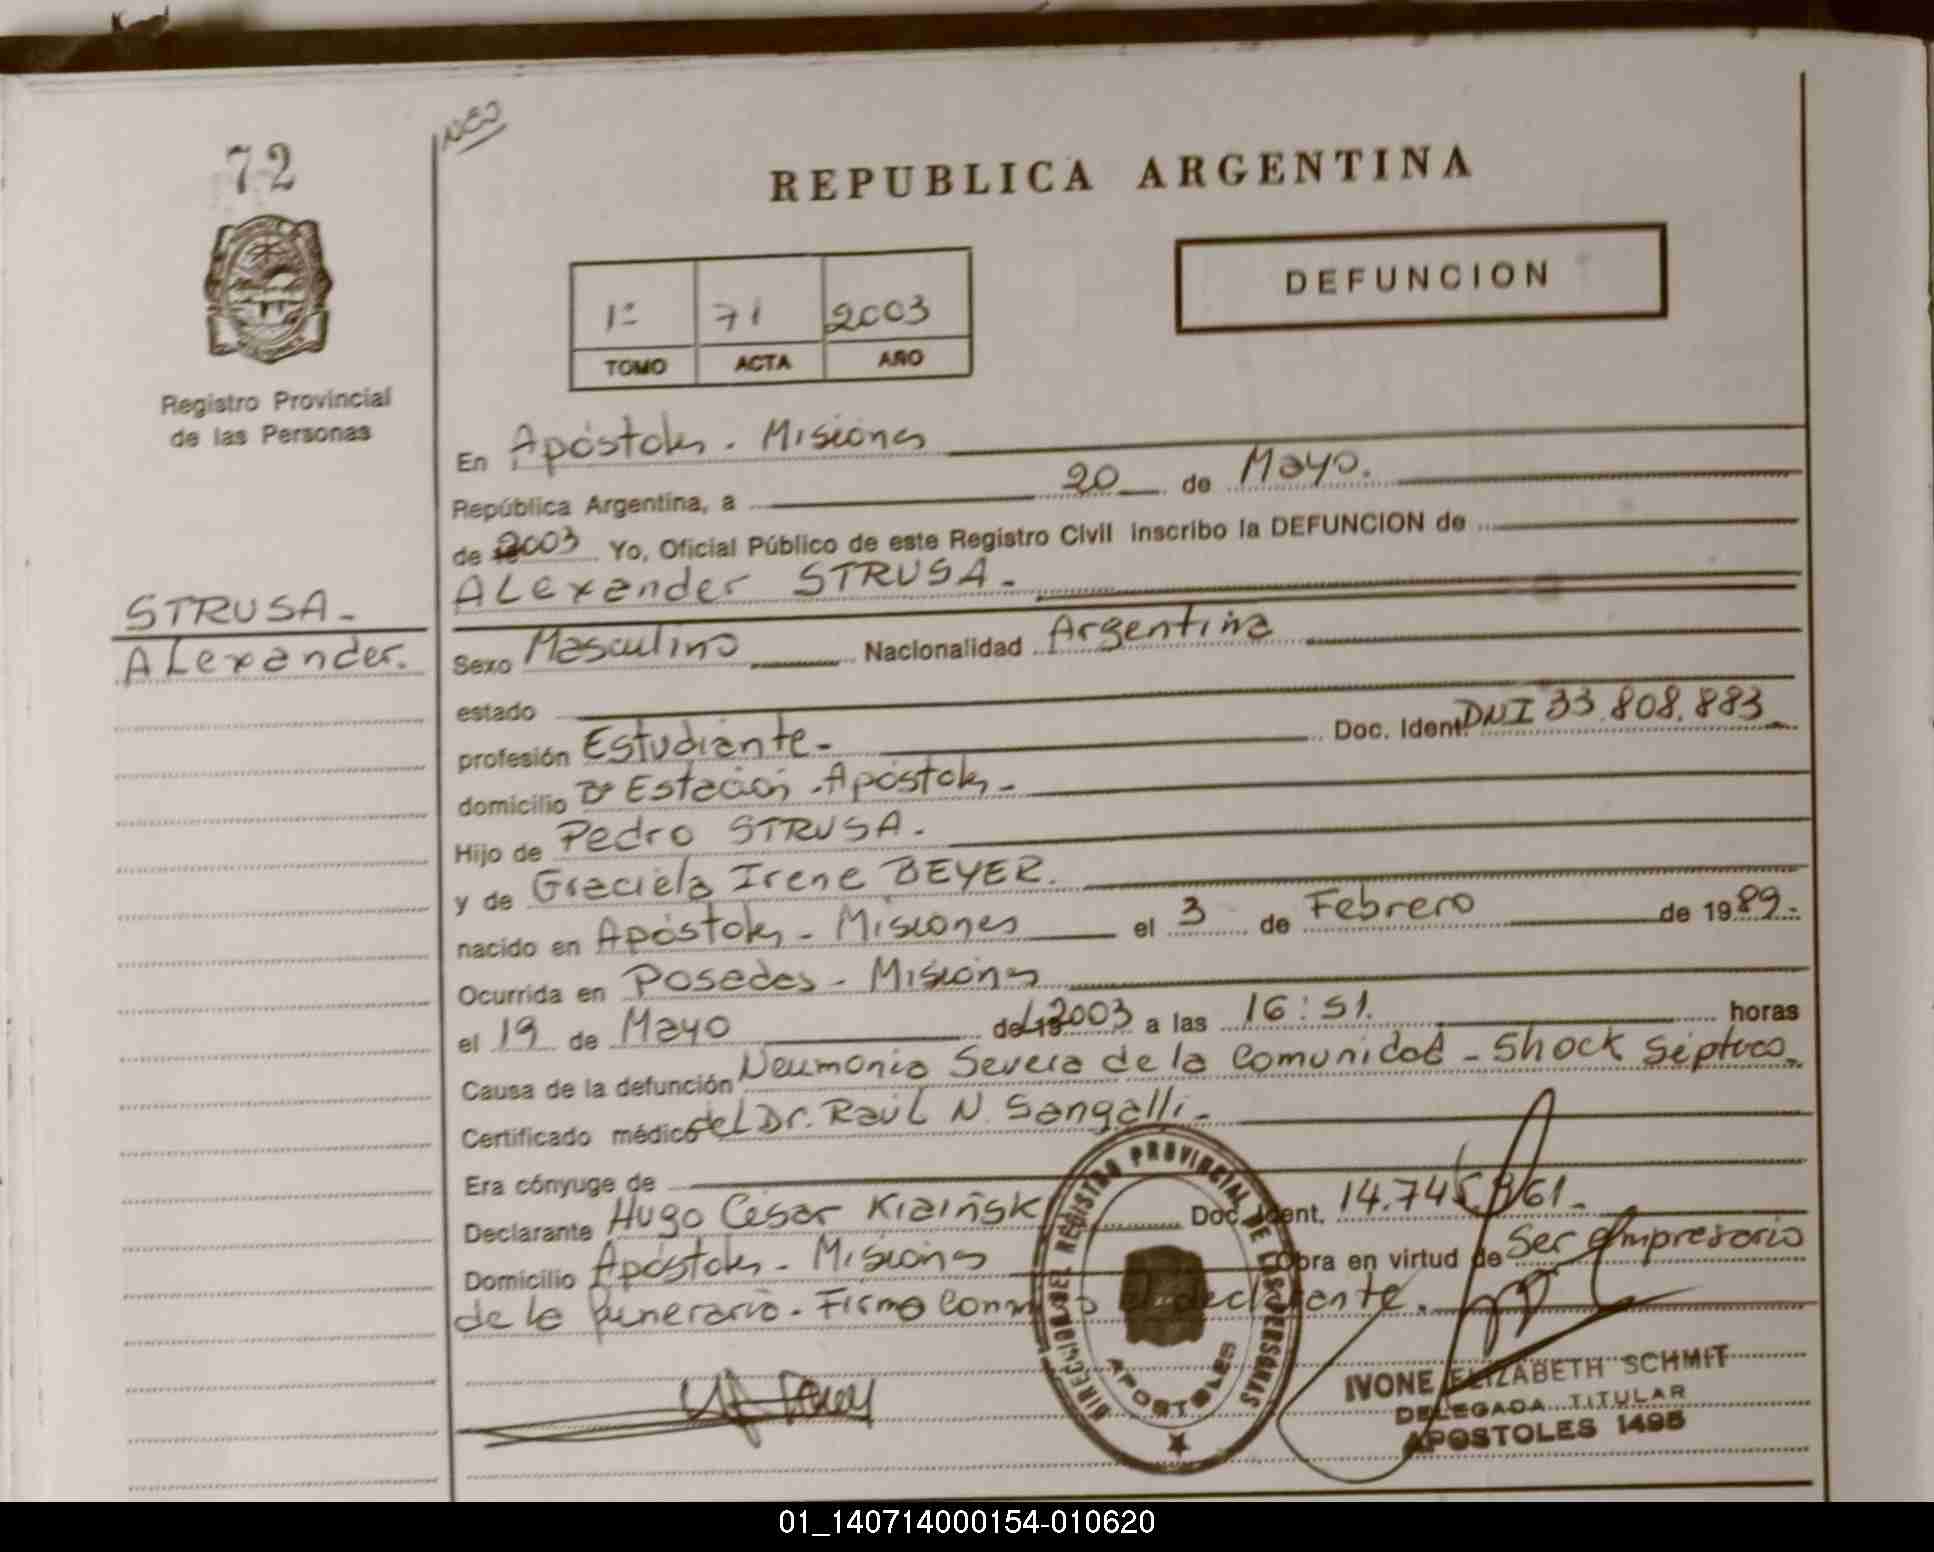 72
REPUBLICA ARGENTINA
DEFUNCION
1º 71 2003
TOMO ACTA AÑO
Registro Provincial
de las Personas
En Apóstoles - Misiones
República Argentina, a 20 de Mayo.
de 2003 Yo, Oficial Público de este Registro Civil inscribo la DEFUNCION de
ALexander STRUSA.-
STRUSA-
ALexander.
Sexo Masculino Nacionalidad Argentina
estado
profesión Estudiante- Doc. Ident. DNI 33.808.883
domicilio Bº Estación - Apóstoles-
Hijo de Pedro STRUSA.
y de Graciela Irene BEYER.
nacido en Apóstoles - Misiones el 3 de Febrero de 1989.-
Ocurrida en Posadas - Misiones
el 19 de Mayo de 2003 a las 16:51. horas
Causa de la defunción Neumonia Severa de la Comunidad - Shock Séptico.
Certificado médico del Dr. Raúl N. Sangalli.-
Era cónyuge de
Declarante Hugo César Doc. Ident. 14.745.
Domicilio Apóstoles - Misiones Obra en virtud de Ser empresario
de la funeraria. Firma conmigo el declarante.
DIRECCION DEL REGISTRO PROVINCIAL DE LAS PERSONAS
APOSTOLES
IVONE ELIZABETH SCHMIT
DELEGADA TITULAR
APOSTOLES 1495
01_140714000154-010620